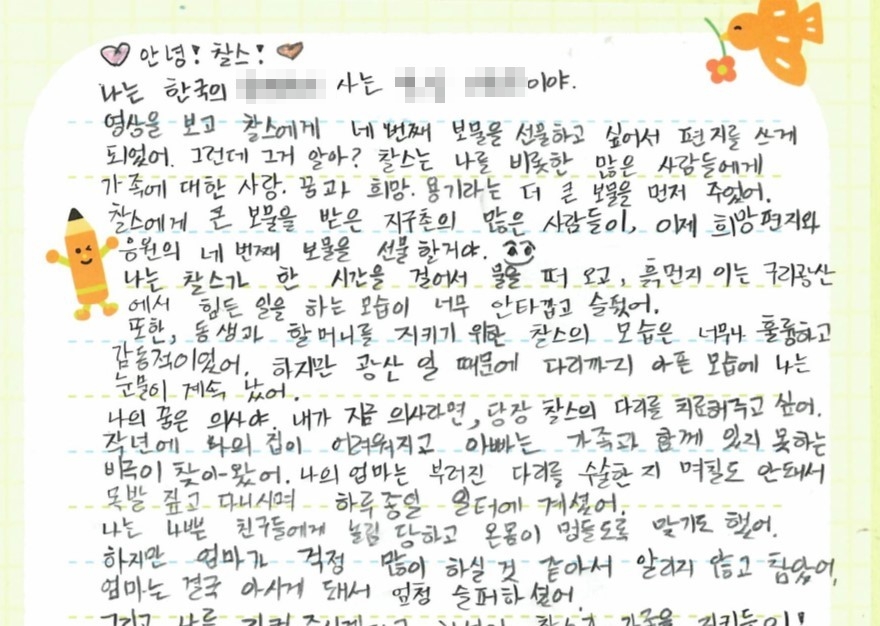 안녕! 찰스!
나는 한국의 사는 이야.
영상을 보고 찰스에게 네 번째 보물을 선물하고 싶어서 편지를 쓰게
되었어. 그런데 그거 알아? 찰스는 나를 비롯한 많은 사람들에게
가족에 대한 사랑. 꿈과 희망. 용기라는 더 큰 보물을 먼저 주었어.
찰스에게 큰 보물을 받은 지구촌의 많은 사람들이, 이제 희망편지와
응원의 네 번째 보물을 선물할거야.
나는 찰스가 한 시간을 걸어서 물을 떠 오고, 흙먼지 이는 구리광산
에서 힘든 일을 하는 모습이 너무 안타깝고 슬펐어.
또한, 동생과 할머니를 지키기 위한 찰스의 모습은 너무나 훌륭하고
감동적이었어. 하지만 광산 일 때문에 다리까지 아픈 모습에 나는
눈물이 계속 났어.
나의 꿈은 의사야. 내가 지금 의사라면, 당장 찰스의 다리를 치료해주고 싶어.
작년에 나의 집이 어려워지고 아빠는 가족과 함께 있지 못하는
비극이 찾아왔어. 나의 엄마는 부러진 다리를 수술한 지 며칠도 안돼서
목발 짚고 다니시며 하루종일 일터에 계셨어.
나는 나쁜 친구들에게 놀림 당하고 온몸이 멍들도록 맞기도 했어.
하지만 엄마가 걱정 많이 하실 것 같아서 알리지 않고 참았어,
엄마는 결국 아시게 돼서 엄청 슬퍼하셨어.
그리고 나를